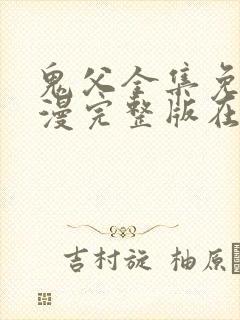 鬼父全集免
漫完整版在
吉村旋 柚原